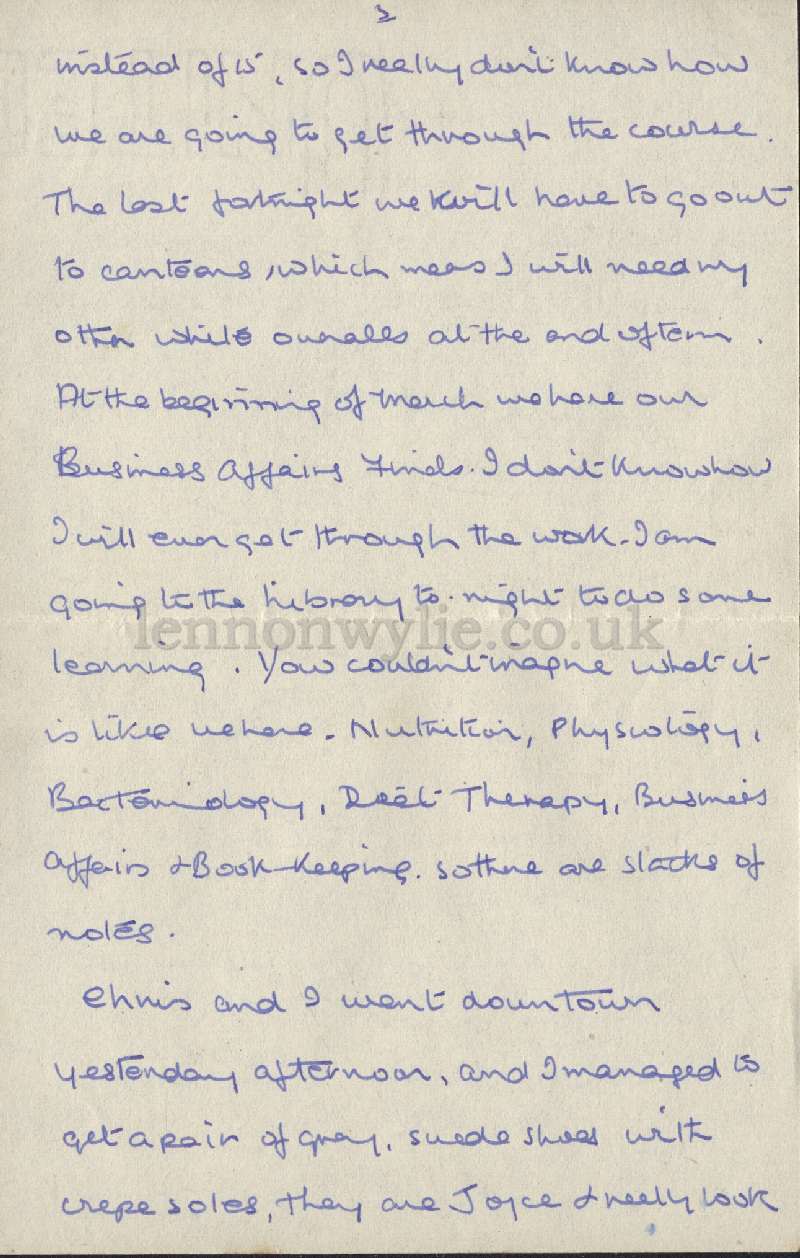 2
instead of 15, so I really don't know how
we are going to get through the course.
The last fortnight we will have to go out
to canteens, which meas I will need my
other white overalls at the end of term.
At the beginning of March we have our
Business Affairs Finals. I don't know how
I will ever get through the work. I am
going to the Library to-night to do some
lennonwylie.co.uk
learning. You couldn't imagine what it
is like we have. Nutrition, Physiology,
Bacteriology, Diet Therapy, Business
Affairs & Book-Keeping. so there are stacks of
notes.
Chris and I went down town
yesterday afternoon, and I managed to
get a pair of gray, suede shoes with
crepe soles, they are Joyce & really look